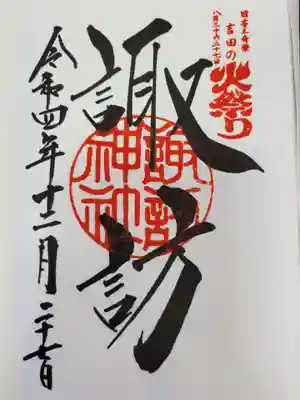 日本三奇祭
吉田の
火祭り
八月二十六・二十七日
諏訪
諏訪
神社
令和四年十二月二十七日